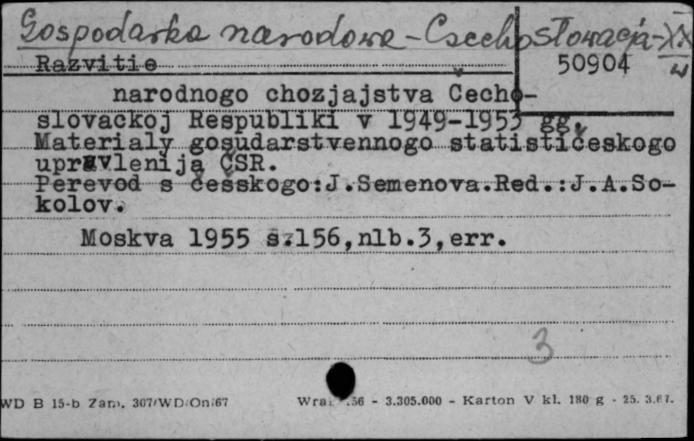 Gospodarka narodowa - Czechosłowacja - XX w
Razvitie
50904
narodnogo chozjajstva Čecho-
slovackoj Respubliki v 1949-1953 gg.
Materialy gosudarstvennogo statističeskogo
upravlenija ČSR.
Perevod s češskogo:J.Semenova.Red.:J.A.So-
kolov.
Moskva 1955 s.156,nlb.3,err.
3
WD B 15-b Zam. 307/WD/On/67
56 - 3.305.000 - Karton V kl. 180 g - 25. 3.67.